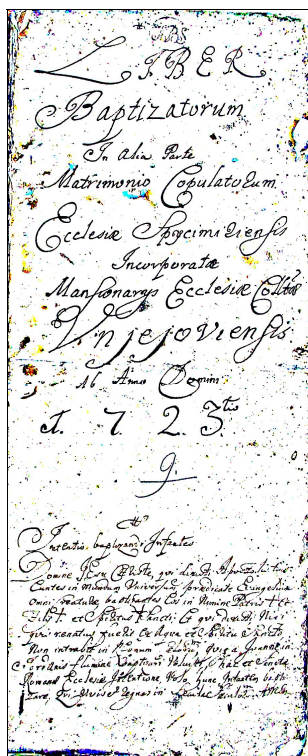 LIBER
Baptizatorum
In alia Parte
Matrimonio Copulatorum
Ecclesiæ Spycimiriensis
Incorporatæ
Mansionarys Ecclesiæ Colltæ
Vnjejoviensis
Ab Anno Domini
1. 7. 2. 3tio
9.
Intentio baptizandi Infantes
Domine Jesu Christe, qui dixisti Apostolis tuis
Euntes in mundum Universum prædicate Evangelium
omni creaturæ baptisantes Eos in Nomine Patris et
Filii et Spiritus Sancti et qui dixisti Nisi
quis renatus fuerit ex Aqua et Spiritu Sancto
Non introibit in Regnum
Romanæ Ecclesiæ Intentione, Volo hunc Infantem bapti
zare, Qui Vivis et regnas in